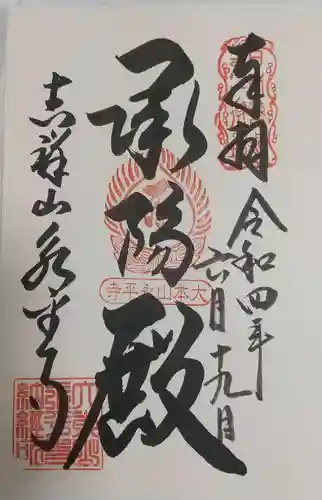 奉拝
令和四年
六月十九日
承陽殿
大本山永平寺
吉祥山永平寺